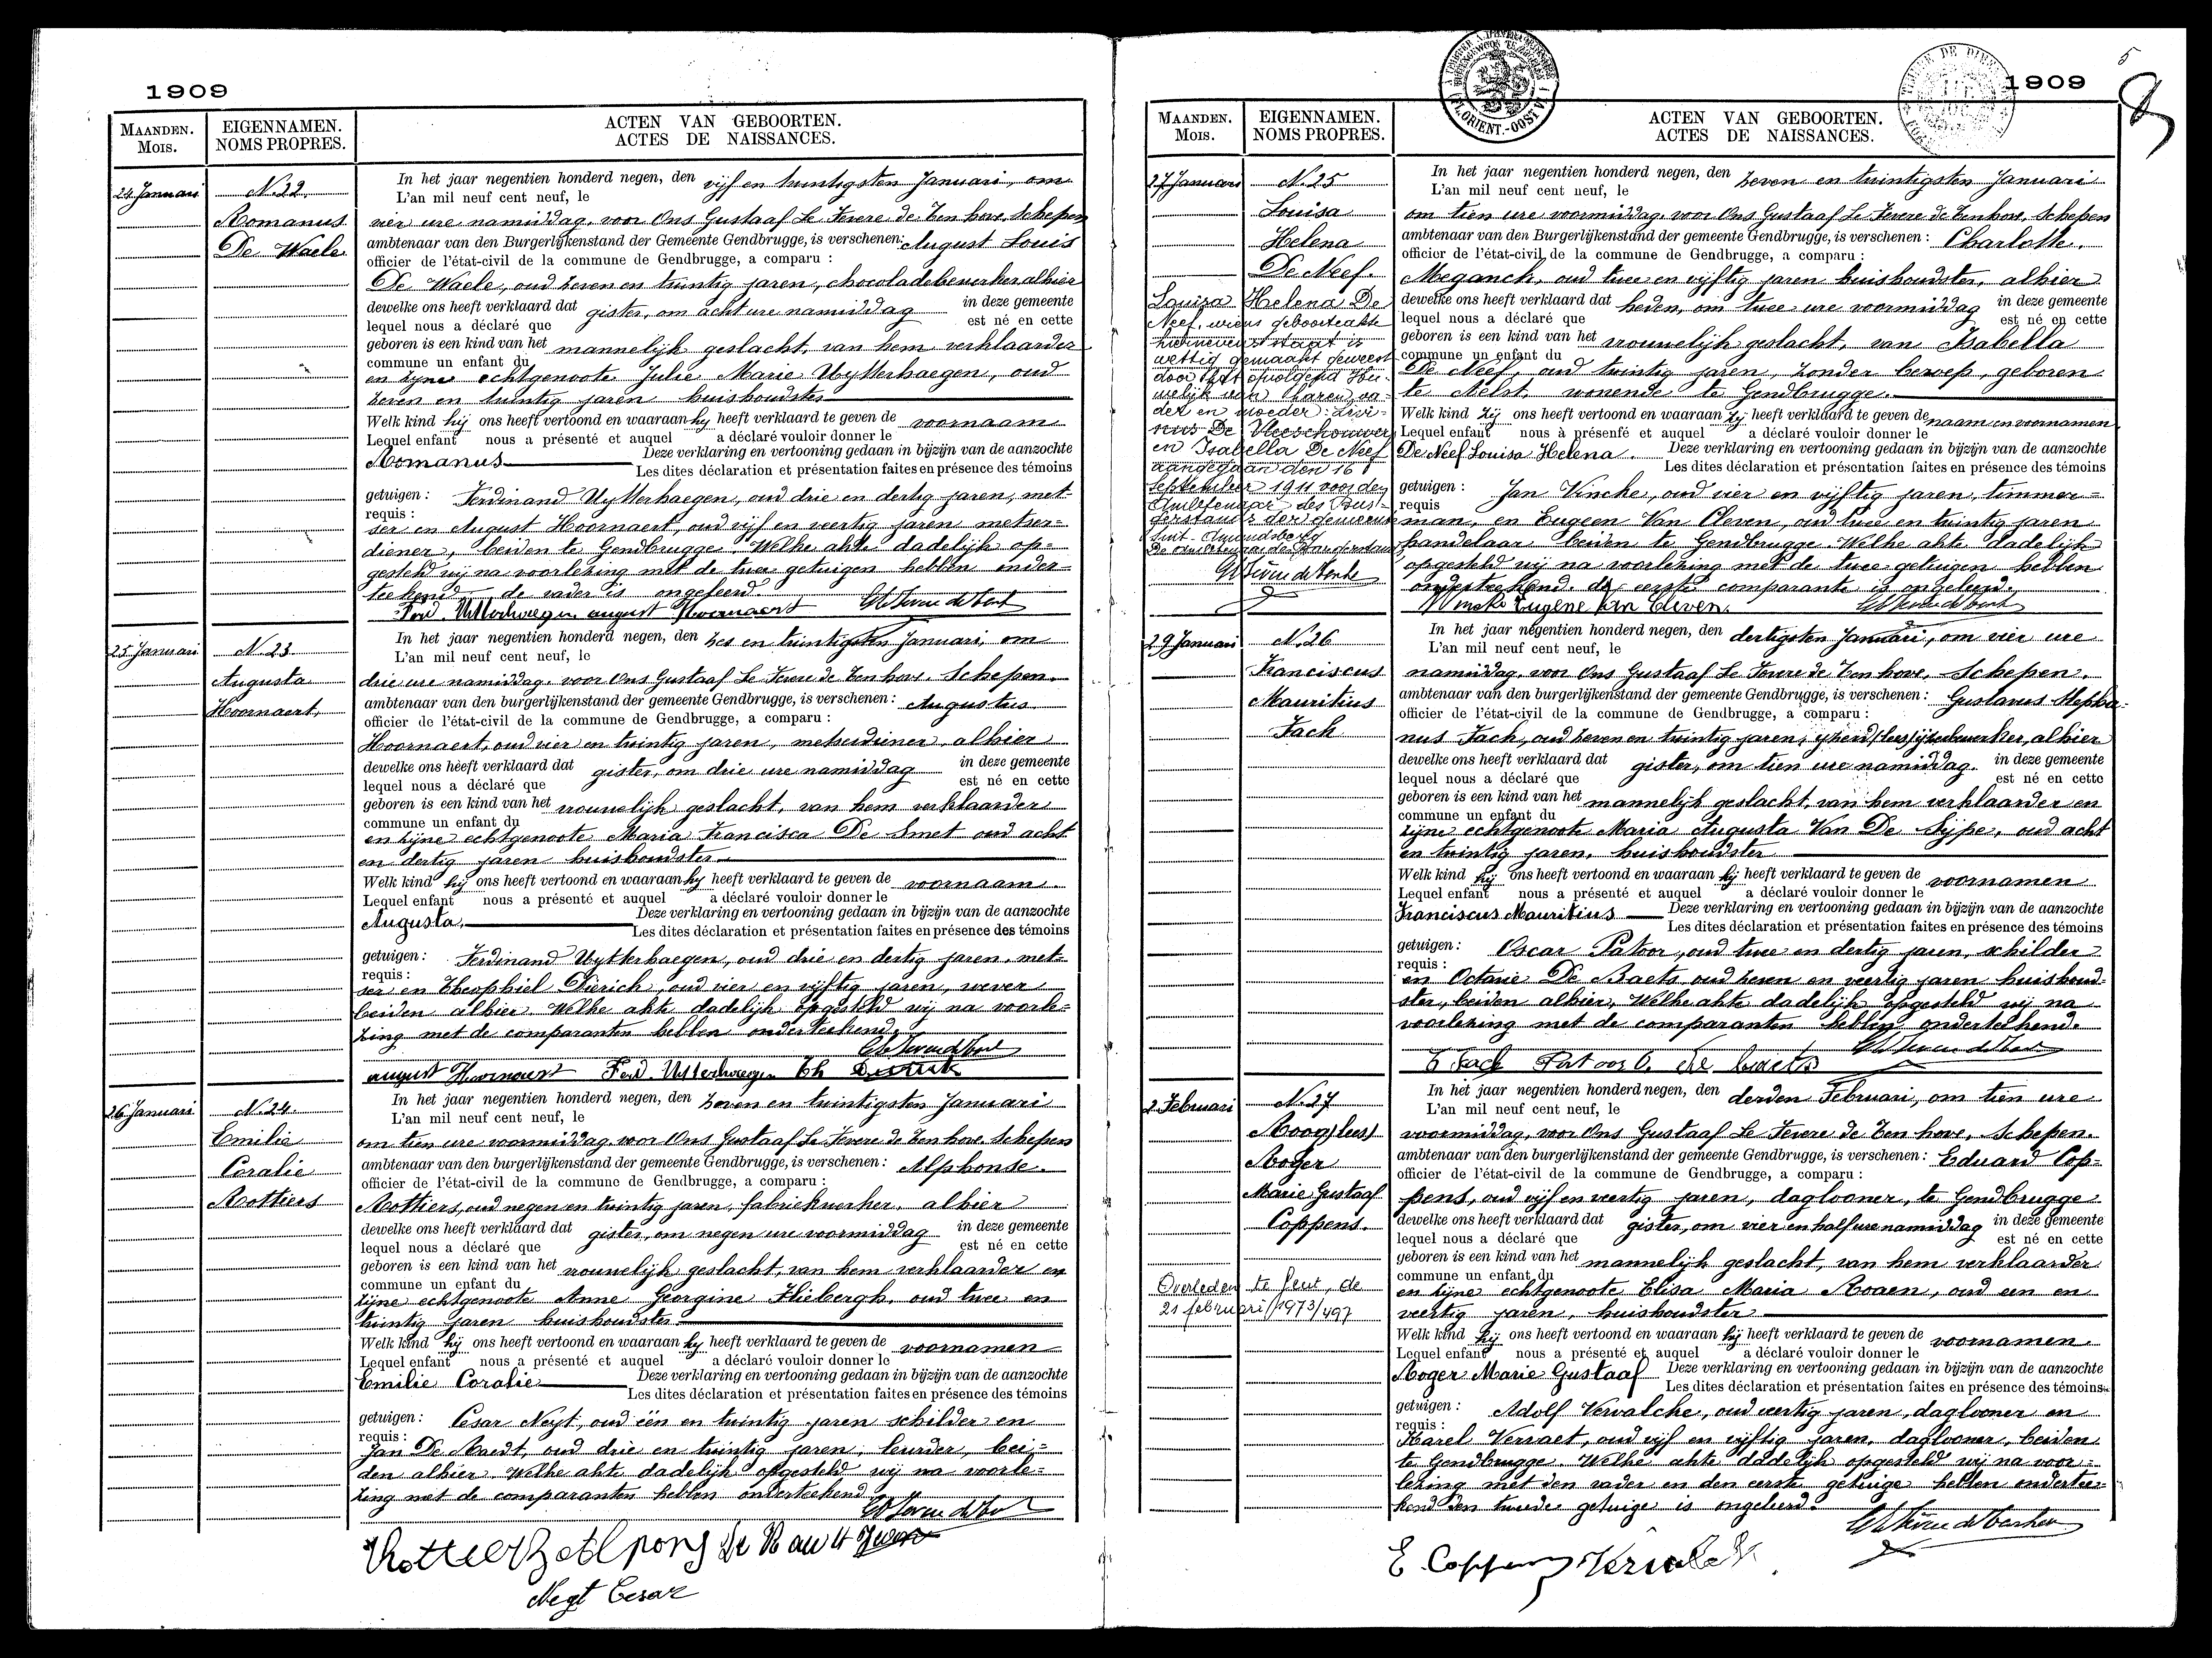 1909
MAANDEN. EIGENNAMEN. ACTEN VAN GEBOORTEN.
MOIS. NOMS PROPRES. ACTES DE NAISSANCES.
24 Januari
N. 22.
Romanus
De Waele
In het jaar negentien honderd negen, den vijf en twintigsten Januari, om
L'an mil neuf cent neuf, le
vier ure namiddag, voor Ons Gustaaf Le Fevere de Ten hove, Schepen
ambtenaar van den Burgerlijkenstand der Gemeente Gendbrugge, is verschenen: August Louis
officier de l'état-civil de la commune de Gendbrugge, a comparu :
De Waele, oud zeven en twintig jaren, chocoladebewerker alhier
dewelke ons heeft verklaard dat gister, om acht ure namiddag in deze gemeente
lequel nous a déclaré que est né en cette
geboren is een kind van het mannelijk geslacht, van hem verklaarder
commune un enfant du
en zijne echtgenoote Julie Marie Uytterhaegen, oud
zeven en twintig jaren huishoudster
Welk kind hij ons heeft vertoond en waaraan hij heeft verklaard te geven de voornaam
Lequel enfant nous a présenté et auquel a déclaré vouloir donner le
Romanus Deze verklaring en vertooning gedaan in bijzijn van de aanzochte
Les dites déclaration et présentation faites en présence des témoins
getuigen : Ferdinand Uytterhaegen, oud drie en dertig jaren, met-
requis :
ser en August Hoornaert, oud vijf en veertig jaren metser-
diener, beiden te Gendbrugge. Welke akte dadelijk op-
gesteld wij na voorlezing met de twee getuigen hebben onder-
teekend de vader is ongeleerd.
Ferd. Utterhaegen august Hoornaert
25 Januari
N. 23
Augusta
Hoornaert,
In het jaar negentien honderd negen, den zes en twintigsten Januari, om
L'an mil neuf cent neuf, le
drie ure namiddag, voor Ons Gustaaf Le Fevere de Ten hove, Schepen.
ambtenaar van den burgerlijkenstand der gemeente Gendbrugge, is verschenen: Augustus
officier de l'état-civil de la commune de Gendbrugge, a comparu :
Hoornaert, oud vier en twintig jaren, metserdiener, alhier
dewelke ons heeft verklaard dat gister, om drie ure namiddag in deze gemeente
lequel nous a déclaré que est né en cette
geboren is een kind van het vrouwelijk geslacht, van hem verklaarder
commune un enfant du
en zijne echtgenoote Maria Francisca De Smet oud acht
en dertig jaren huishoudster
Welk kind hij ons heeft vertoond en waaraan hij heeft verklaard te geven de voornaam.
Lequel enfant nous a présenté et auquel a déclaré vouloir donner le
Augusta, Deze verklaring en vertooning gedaan in bijzijn van de aanzochte
Les dites déclaration et présentation faites en présence des témoins
getuigen : Ferdinand Uytterhaegen, oud drie en dertig jaren, met-
requis :
ser en Theophiel Dierich, oud vier en vijftig jaren, wever
beiden alhier. Welke akte dadelijk opgesteld wij na voorle-
zing met de comparanten hebben onderteekend.
august Hoornaert Ferd. Utterhaegen Th
26 Januari
N. 24.
Emilie
Coralie
Rottiers
In het jaar negentien honderd negen, den zeven en twintigsten Januari
L'an mil neuf cent neuf, le
om tien ure voormiddag, voor Ons Gustaaf Le Fevere de Ten hove, Schepen
ambtenaar van den burgerlijkenstand der gemeente Gendbrugge, is verschenen: Alphonse
officier de l'état-civil de la commune de Gendbrugge, a comparu :
Rottiers, oud negen en twintig jaren, fabriekwerker, alhier
dewelke ons heeft verklaard dat gister, om negen ure voormiddag in deze gemeente
lequel nous a déclaré que est né en cette
geboren is een kind van het vrouwelijk geslacht, van hem verklaarder en
commune un enfant du
zijne echtgenoote Anne Georgine Hiebergh, oud twee en
twintig jaren huishoudster
Welk kind hij ons heeft vertoond en waaraan hij heeft verklaard te geven de voornamen
Lequel enfant nous a présenté et auquel a déclaré vouloir donner le
Emilie Coralie Deze verklaring en vertooning gedaan in bijzijn van de aanzochte
Les dites déclaration et présentation faites en présence des témoins
getuigen : Cesar Neyt, oud één en twintig jaren schilder en
requis :
Jan De Raedt, oud drie en twintig jaren, leurder, bei-
den alhier. Welke akte dadelijk opgesteld wij na voorle-
zing met de comparanten hebben onderteekend
Neyt Cesar
1909
MAANDEN. EIGENNAMEN. ACTEN VAN GEBOORTEN.
MOIS. NOMS PROPRES. ACTES DE NAISSANCES.
27 Januari
N. 25
Louisa
Helena
De Neef.
Louisa Helena De
Neef, wiens geboorteakte
hiernevens staat is
wettig gemaakt geweest
door het opvolgend Hu-
welijk van haren va-
der en moeder: Livi-
nus De Vleeschouwer
en Isabella De Neef
aangegaan den 16
September 1911 voor den
Ambtenaar des Bur-
gerstands der gemeente
Sint-Amandsberg
De ambtenaar der Burgerstand
In het jaar negentien honderd negen, den zeven en twintigsten Januari
L'an mil neuf cent neuf, le
om tien ure voormiddag, voor Ons Gustaaf Le Fevere de Ten hove, Schepen
ambtenaar van den Burgerlijkenstand der gemeente Gendbrugge, is verschenen : Charlotte
officier de l'état-civil de la commune de Gendbrugge, a comparu :
Meganck, oud twee en vijftig jaren huishoudster, alhier
dewelke ons heeft verklaard dat heden, om twee ure voormiddag in deze gemeente
lequel nous a déclaré que est né en cette
geboren is een kind van het vrouwelijk geslacht, van Isabella
commune un enfant du
De Neef, oud twintig jaren, zonder beroep, geboren
te Aelst, wonende te Gendbrugge.
Welk kind zij ons heeft vertoond en waaraan zij heeft verklaard te geven de naam en voornamen
Lequel enfant nous à présenté et auquel a déclaré vouloir donner le
De Neef Louisa Helena. Deze verklaring en vertooning gedaan in bijzijn van de aanzochte
Les dites déclaration et présentation faites en présence des témoins
getuigen : Jan Vincke, oud vier en vijftig jaren, timmer-
requis
man, en Eugeen Van Cleven, oud twee en twintig jaren
handelaar beiden te Gendbrugge. Welke akte dadelijk
opgesteld wij na voorlezing met de twee getuigen hebben
onderteekend. de eerste comparante is ongeleerd.
Vincke Eugène Van Cleven.
29 Januari
N. 26
Franciscus
Mauritius
Fack
In het jaar negentien honderd negen, den dertigsten Januari, om vier ure
L'an mil neuf cent neuf, le
namiddag, voor Ons Gustaaf Le Fevere de Ten hove, Schepen.
ambtenaar van den burgerlijkenstand der gemeente Gendbrugge, is verschenen : Gustavus Stepha-
officier de l'état-civil de la commune de Gendbrugge, a comparu :
nus Fack, oud zeven en twintig jaren, (lees) ijzerbewerker, alhier
dewelke ons heeft verklaard dat gister, om tien ure namiddag. in deze gemeente
lequel nous a déclaré que est né en cette
geboren is een kind van het mannelijk geslacht, van hem verklaarder en
commune un enfant du
zijne echtgenoote Maria Augusta Van De Sijpe, oud acht
en twintig jaren, huishoudster
Welk kind hij ons heeft vertoond en waaraan hij heeft verklaard te geven de voornamen
Lequel enfant nous a présenté et auquel a déclaré vouloir donner le
Franciscus Mauritius Deze verklaring en vertooning gedaan in bijzijn van de aanzochte
Les dites déclaration et présentation faites en présence des témoins
getuigen : Oscar Patoor, oud twee en dertig jaren, schilder
requis :
en Octavie De Baets, oud zeven en veertig jaren huishoud-
ster, beiden alhier, Welke akte dadelijk opgesteld wij na
voorlezing met de comparanten hebben onderteekend.
G Fack Patoor O. De baets
2 Februari
N. 27
Roog (lees)
Roger
Marie Gustaaf
Coppens.
Overleden te Gent, de
21 februari 1973/497
In het jaar negentien honderd negen, den derden Februari, om tien ure
L'an mil neuf cent neuf, le
voormiddag, voor Ons Gustaaf Le Fevere de Ten hove, Schepen.
ambtenaar van den burgerlijkenstand der gemeente Gendbrugge, is verschenen : Eduard Cop-
officier de l'état-civil de la commune de Gendbrugge, a comparu :
pens, oud vijf en veertig jaren, daglooner, te Gendbrugge
dewelke ons heeft verklaard dat gister, om vier en half ure namiddag in deze gemeente
lequel nous a déclaré que est né en cette
geboren is een kind van het mannelijk geslacht, van hem verklaarder
commune un enfant du
en zijne echtgenoote Elisa Maria Roaen, oud een en
veertig jaren, huishoudster
Welk kind hij ons heeft vertoond en waaraan hij heeft verklaard te geven de voornamen
Lequel enfant nous a présenté et auquel a déclaré vouloir donner le
Roger Marie Gustaaf Deze verklaring en vertooning gedaan in bijzijn van de aanzochte
Les dites déclaration et présentation faites en présence des témoins
getuigen : Adolf Vervalcke, oud veertig jaren, daglooner en
requis :
Karel Verraet, oud vijf en vijftig jaren, daglooner, beiden
te Gendbrugge. Welke akte dadelijk opgesteld wij na voor-
lezing met den vader en den eerste getuige hebben ondertee-
kend den tweede getuige is ongeleerd.
E. Coppens